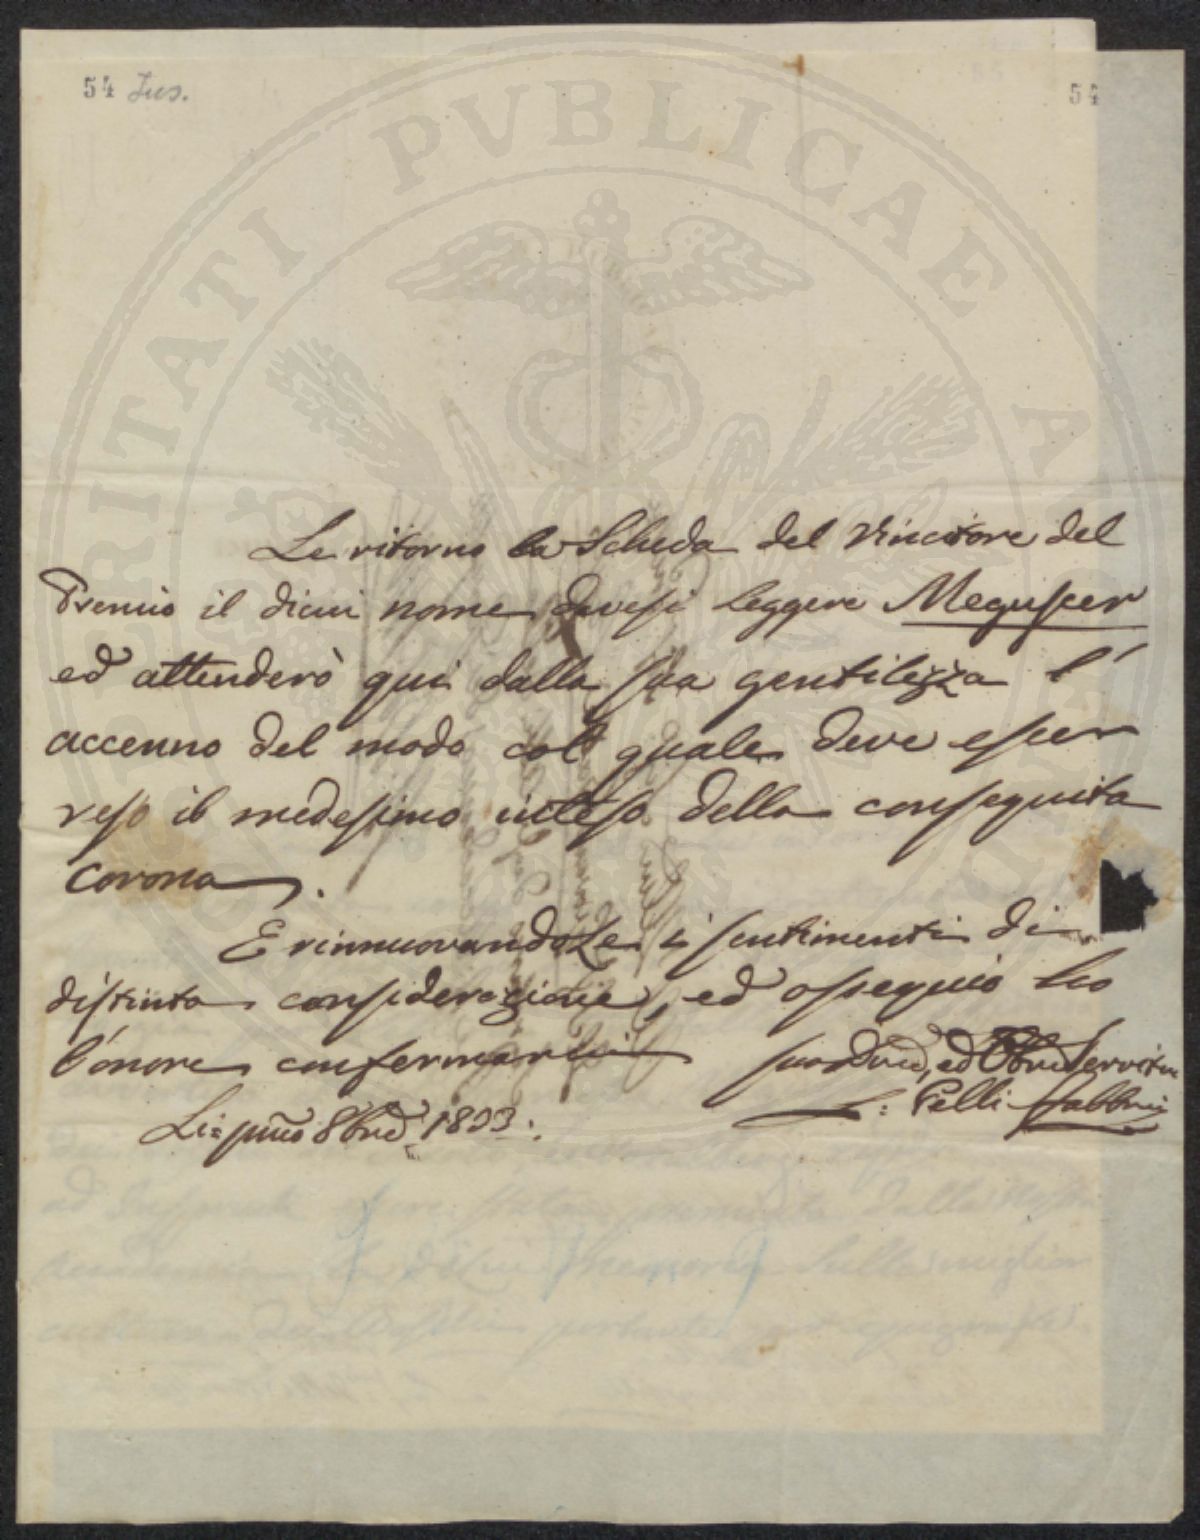 54 Ius.
54
PROSPERITATI PVBLICAE AVGENDAE
Le ritorno la Scheda del Vincitore del
Premio il dicui nome devesi leggere Meguscer
ed attenderò qui dalla sua gentilezza l'
accenno del modo col quale deve esser
reso il medesimo inteso della conseguita
corona.
E rinnuovandoLe i sentimenti di
distinta considerazione, ed ossequio ho
l'onore confermarmi
suo ed Servitore
Pelli Fabbroni
Li: pmo 8bre 1833.